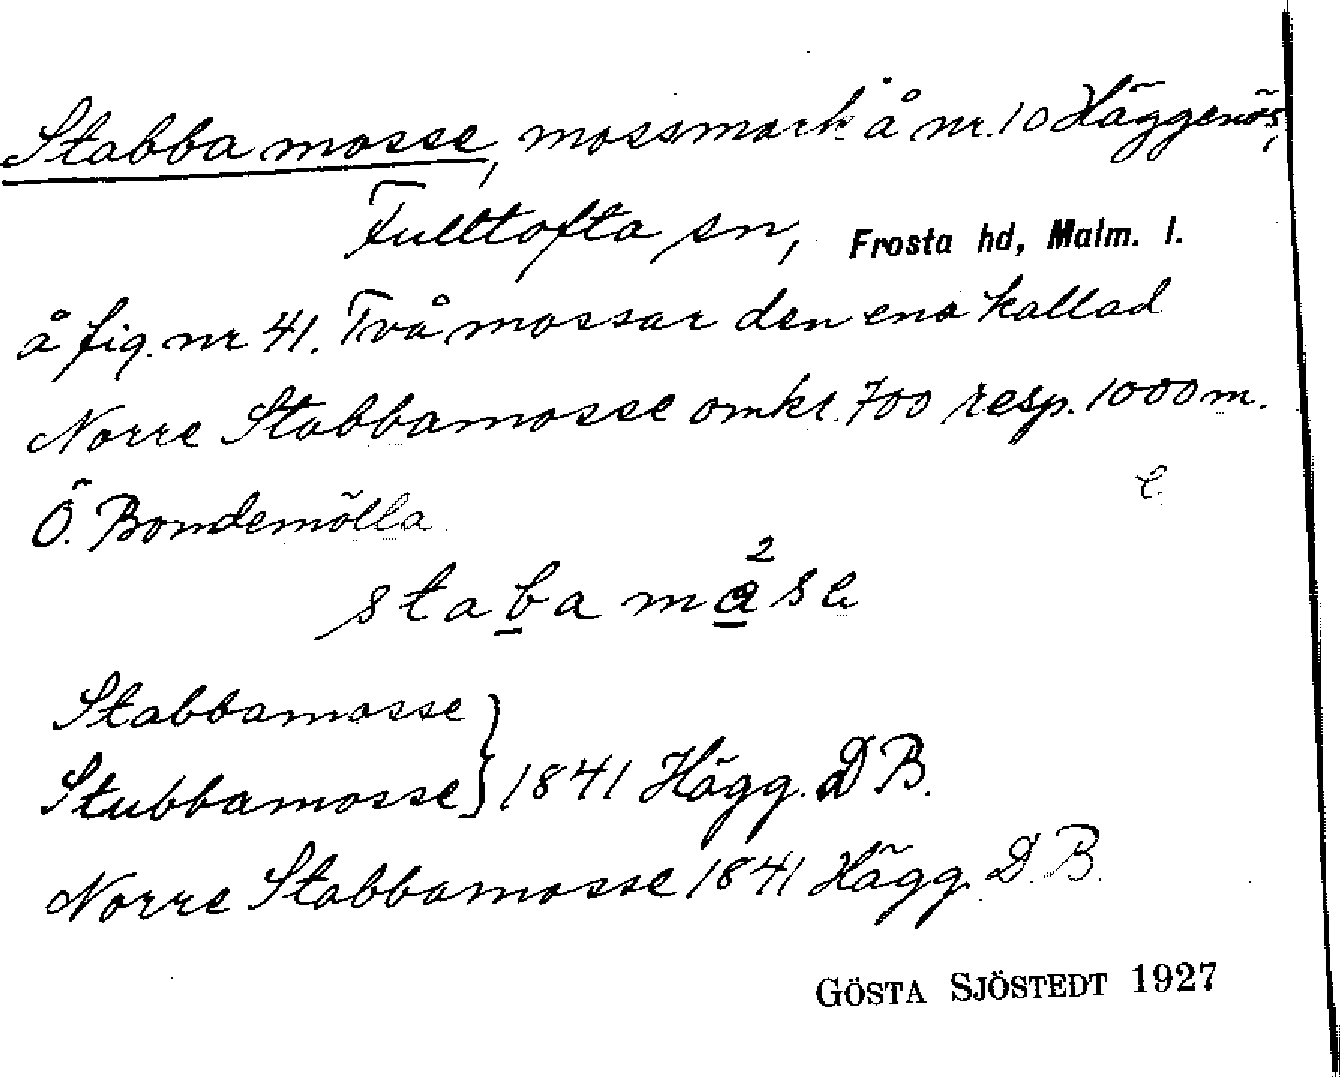 Stabba mosse, mossmark å nr. 10 Häggenäs,
Fulltofta sn, Frosta hd, Malm. l.
å fig. nr 41. Två mossar den ena kallad
Norre Stabbamosse omkr. 700 resp. 1000 m.
Ö. Bondemölla
Stabbamosse
Stubbamosse} 1841 Hägg. D B.
Norre Stabbamosse 1841 Hägg. D. B.
GÖSTA SJÖSTEDT 1927